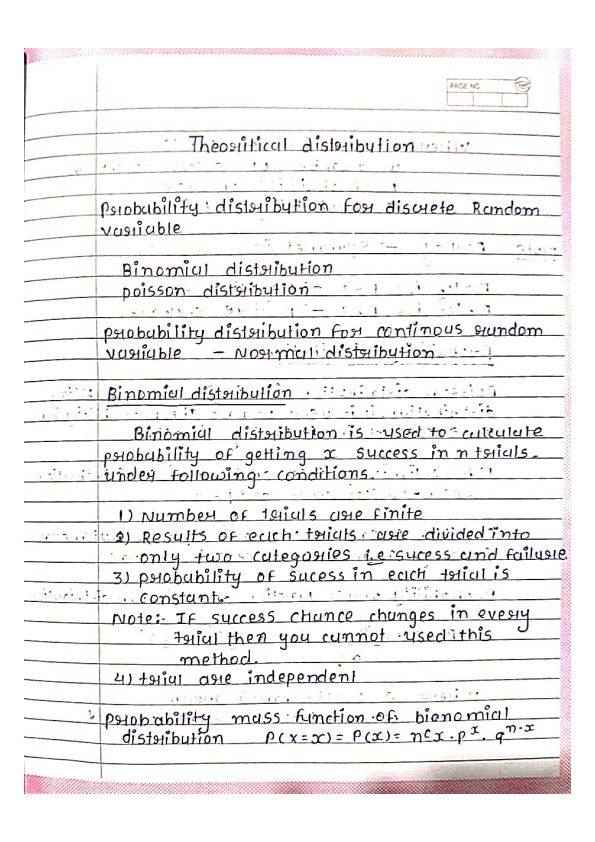 PAGE NO
Theoritical distribution
Probability distribution for discrete Random
variable
Binomial distribution
poisson distribution
probability distribution for continous random
variable - Normal distribution
Binomial distribution
Binomial distribution is used to calculate
probability of getting x success in n trials.
under following conditions.
1) Number of trials are finite
2) Results of each trials are divided into
only two categories i.e sucess and failure
3) probability of sucess in each trial is
constant.
Note:- If success chance changes in every
trial then you cannot used this
method.
4) trial are independent
probability mass function of bionomial
distribution P(X=x) = P(x) = nCx . p^x . q^n-x